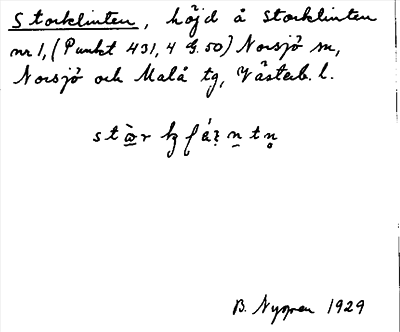 Storklinten, höjd å Storklinten
nr 1, (Punkt 431,4 G.50) Norsjö sn,
Norsjö och Malå tg, Västerb. l.
B. Nygren 1929